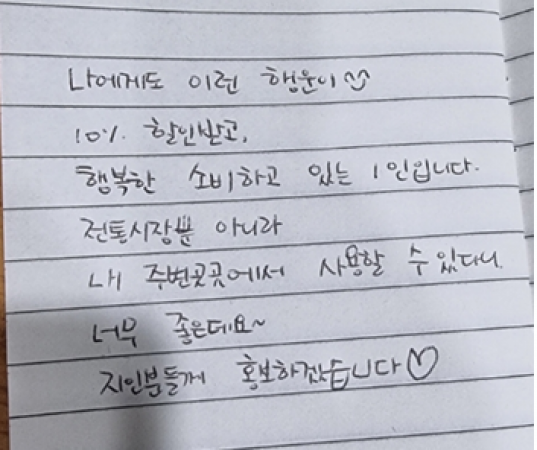 나에게도 이런 행운이^^
10% 할인받고,
행복한 소비하고 있는 1인입니다.
전통시장뿐 아니라
내 주변곳곳에서 사용할 수 있다니.
너무 좋은데요~
지인분들께 홍보하겠습니다♡